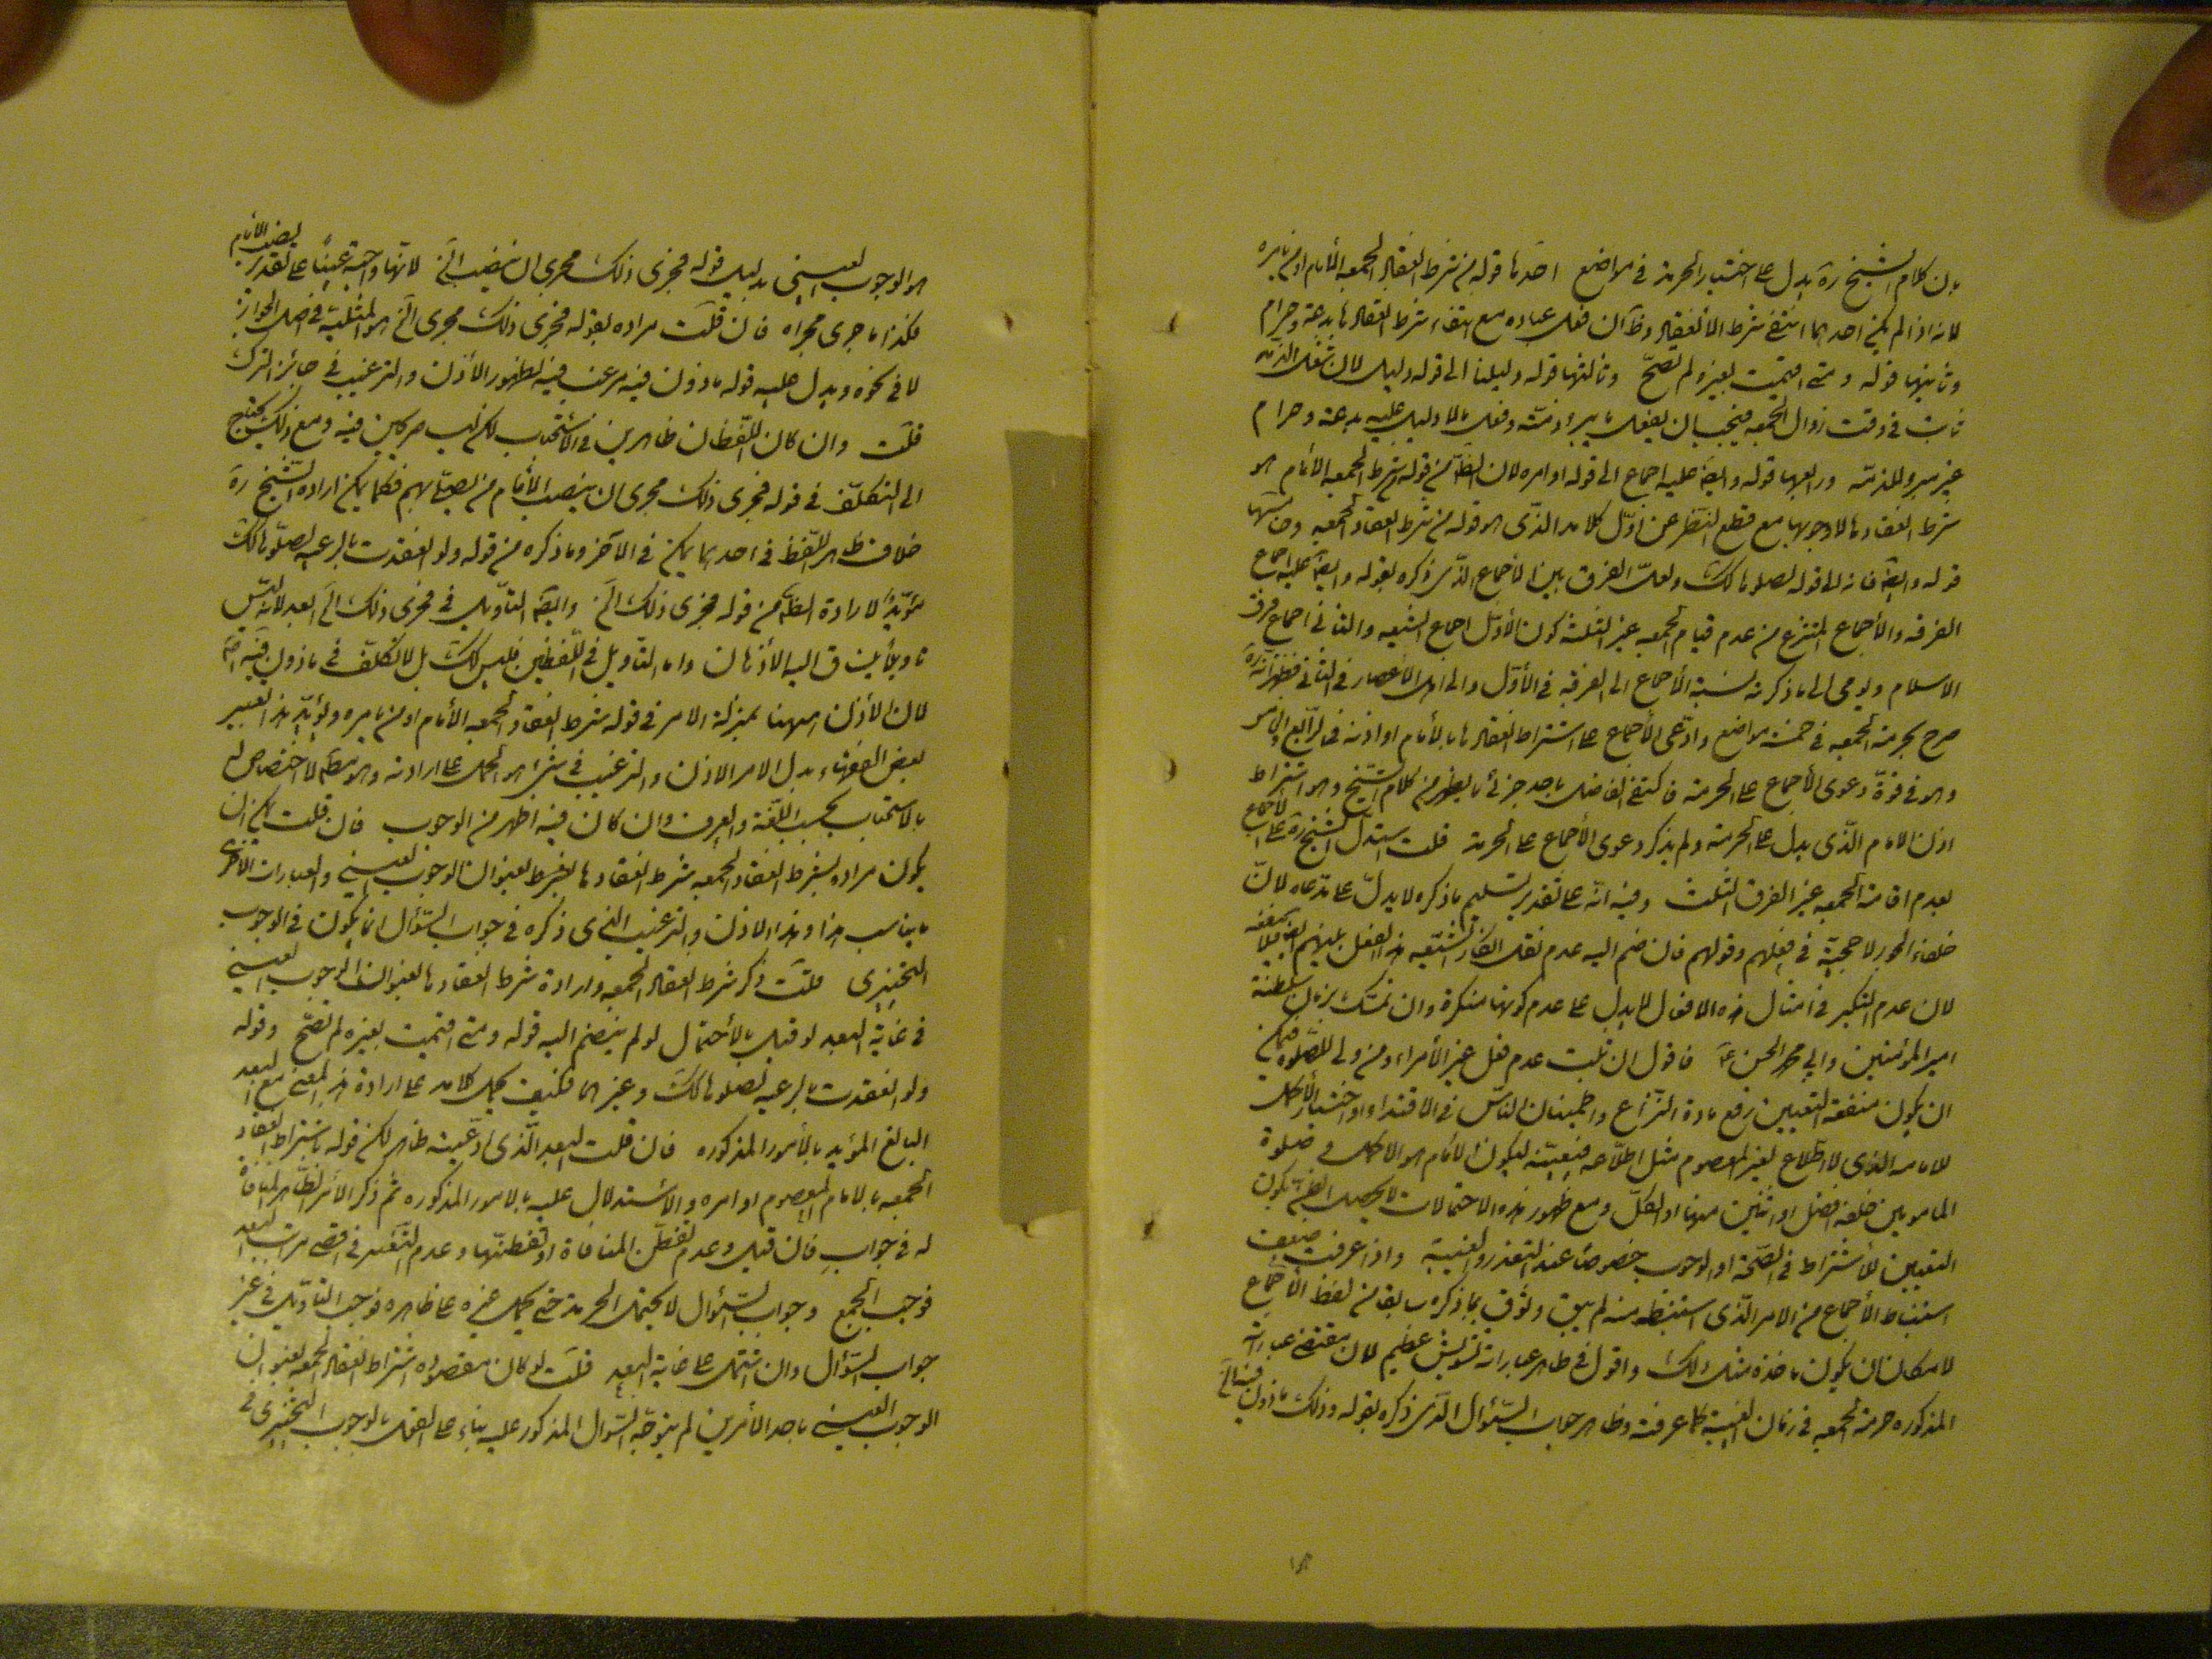 بان كلام الشيخ ره يدل على اختيار الحرمة في مواضع احدها قوله من شرط انعقاد الجمعه الأمام او من يامره
لانه اذا لم يكن احدهما انتفى شرط الأنعقاد وظ ان فعل عباده مع انتفاء شرط انعقادها بدعة وحرام
وثانيها قوله ومتى اقيمت بغيره لم تصح وثالثها قوله دليلنا الى قوله دليل لان شغل الذمه
ثابت في وقت زوال الجمعه فيجب ان يفعل ما يبرء ذمته وفعل ما لا دليل عليه بدعة وحرام
غير مبرء للذمه ورابعها قوله وايضا عليه اجماع الى قوله او امره لان الظ من قوله شرط الجمعه الأمام هو
شرط انعقادها لا وجوبها مع قطع النظر عن اول كلامه الذى هو قوله من شرط انعقاد الجمعه وخامسها
قوله وايضا فانه الى قوله لصلوها كك ولعل الفرق بين الأجماع الذى ذكره بقوله وايضا عليه اجماع
الفرقه والأجماع المنتزع من عدم قيام الجمعه غير الثلثة كون الأول اجماع الشيعه والثانى اجماع فرق
الاسلام ويومى الى ما ذكرته نسبة الأجماع الى الفرقه في الأول والى اهل الأعصار في الثانى فظهر انه ره
صرح بحرمة الجمعه في خمسة مواضع وادعى الأجماع على اشتراط انعقادها بالأمام او اذنه في الرابع والخامس
وهو في قوة دعوى الأجماع على الحرمة فاكتفى الفاضل باحد جزئى ما يظهر من كلام الشيخ وهو اشتراط
اذن الامام الذى يدل على الحرمة ولم يذكر دعوى الأجماع على الحرمة قلت استدل الشيخ ره على الأجماع
بعدم اقامة الجمعه غير الفرق الثلث وفيه انه على تقدير تسليم ما ذكره لا يدل على مدعاه لان
خلفاء الجور لا حجية في فعلهم وقولهم فان ضم اليه عدم نقل انكار الشيعه هذا الفعل عليهم ايضا فلا ينفعه
لان عدم النكير في امثال هذه الافعال لا يدل على عدم كونها منكرة وان تمسك بزمان سلطنة
امير المؤمنين وابى محمد الحسن ع فاقول ان ثبت عدم فعل غير الأمراء ومن ولى للصلوة فيمكن
ان يكون منفعة التعيين رفع مادة النزاع واطمينان الناس في الاقتداء او اختيار الأكمل
للامامه الذى لا اطلاع لغير المعصوم مثل اطلاعه فيعينه ليكون الأمام هو الاكمل و صلوة
المامومين خلفه افضل او اثنين منها او الكل ومع ظهور هذه الاحتمالات لا يحصل الظن بكون
التعيين للأشتراط في الصحة او الوجوب خصوصا عند التعذر والغيبة واذا عرفت ضعف
استنباط الأجماع من الامر الذى استنبطه منه لم يبق وثوق بما ذكره سابقا من لفظ الأجماع
لامكان ان يكون ماخذه مثل ذلك واقول في ظاهر عباراته تشويش عظيم لان مقتضى عبارته
المذكوره حرمة الجمعه في زمان الغيبة كما عرفته وظاهر جواب السئوال الذى ذكره بقوله وذلك ماذون فيه الخ
هوا
هو الوجوب العينى بدليل قوله فجرى ذلك مجرى ان ينصب الخ لانها واجبة عينا على تقدير نصب الأمام
فكذا ما جرى مجراه فان قلت مراده بقوله فجرى ذلك مجرى الخ هو المثلية في اصل الجواز
لا في نحوه ويدل عليه قوله ماذون فيه مرغب فيه لظهور الأذن والترغيب في جائز الترك
قلت وان كان اللفظان ظاهرين في الأستحباب لكن ليسا صريحين فيه ومع ذلك يحتاج
الى التكلف في قوله فجرى ذلك مجرى ان ينصب الأمام من يصلى بهم فكما يمكن ارادة الشيخ ره
خلاف ظاهر اللفظ في احدهما يمكن في الآخر وما ذكره من قوله ولو انعقدت بالرعيه لصلوها كك
مؤيد لارادة الظ من قوله فجرى ذلك الخ وايضا التاويل في فجرى ذلك الخ ابعد لانه ليس
تاويلا ينساق اليه الأذهان واما التاويل في اللفظين فليس كك بل لا تكلف في ماذون فيه اصلا
لان الأذن ههنا بمنزلة الامر في قوله شرط انعقاد الجمعه الأمام او من يامره ويؤيد هذا تعبير
بعض الفقهاء بدل الامر الاذن والترغيب في شئ هو الحمل على ارادته وهو مما لا اختصاص له
بالاستحباب بحسب اللغة والعرف وان كان فيه اظهر من الوجوب فان قلت يمكن ان
يكون مراده بشرط انعقاد الجمعه شرط انعقادها بشرط بعنوان الوجوب العينى والعبارات الأخرى
ما يناسب هذا وهذا الاذن والترغيب الذى ذكره في جواب السئوال انما يكون في الوجوب
التخييرى قلت ذكر شرط انعقاد الجمعه وارادة شرط انعقادها بعنوان الوجوب العينى
في غاية البعد لو قيل بالأحتمال لو لم ينضم اليه قوله ومتى اقيمت بغيره لم تصح وقوله
ولو انعقدت بالرعيه لصلوها كك وغيرها فكيف يحمل كلامه على ارادة هذا المعنى مع البعد
البالغ المؤيد بالأمور المذكوره فان قلت البعد الذى ادعيته ظاهر لكن قوله باشتراط انعقاد
الجمعه بالامام المعصوم او امره والأستدلال عليه بالامور المذكوره ثم ذكر الأمر الظاهر المنافاة
له في جواب فان قيل وعدم تفطن المنافاة او تفطنها وعدم التعرض في اقصى مراتب البعد
فوجب الجمع وجواب السئوال لا يحتمل الحرمة حتى يحمل غيره على ظاهره فوجب التاويل في غير
جواب السئوال وان اشتمل على غاية البعد قلت لو كان مقصوده اشتراط انعقاد الجمعه بعنوان
الوجوب العينى باحد الأمرين لم يتوجه السئوال المذكور عليه بناء على القول بالوجوب التخييرى في